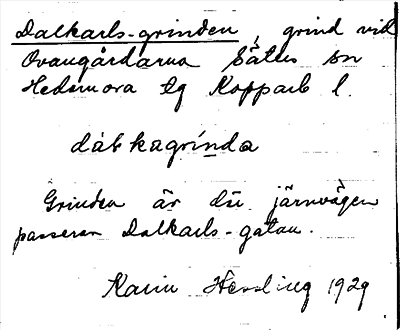 Dalkarls-grinden, grind vid
Ovangårdarna Säters sn
Hedemora tg Kopparb l.
dàɫkagrínda
Grinden är där järnvägen
passerar Dalkarls-gatan.
Karin Hessling 1929